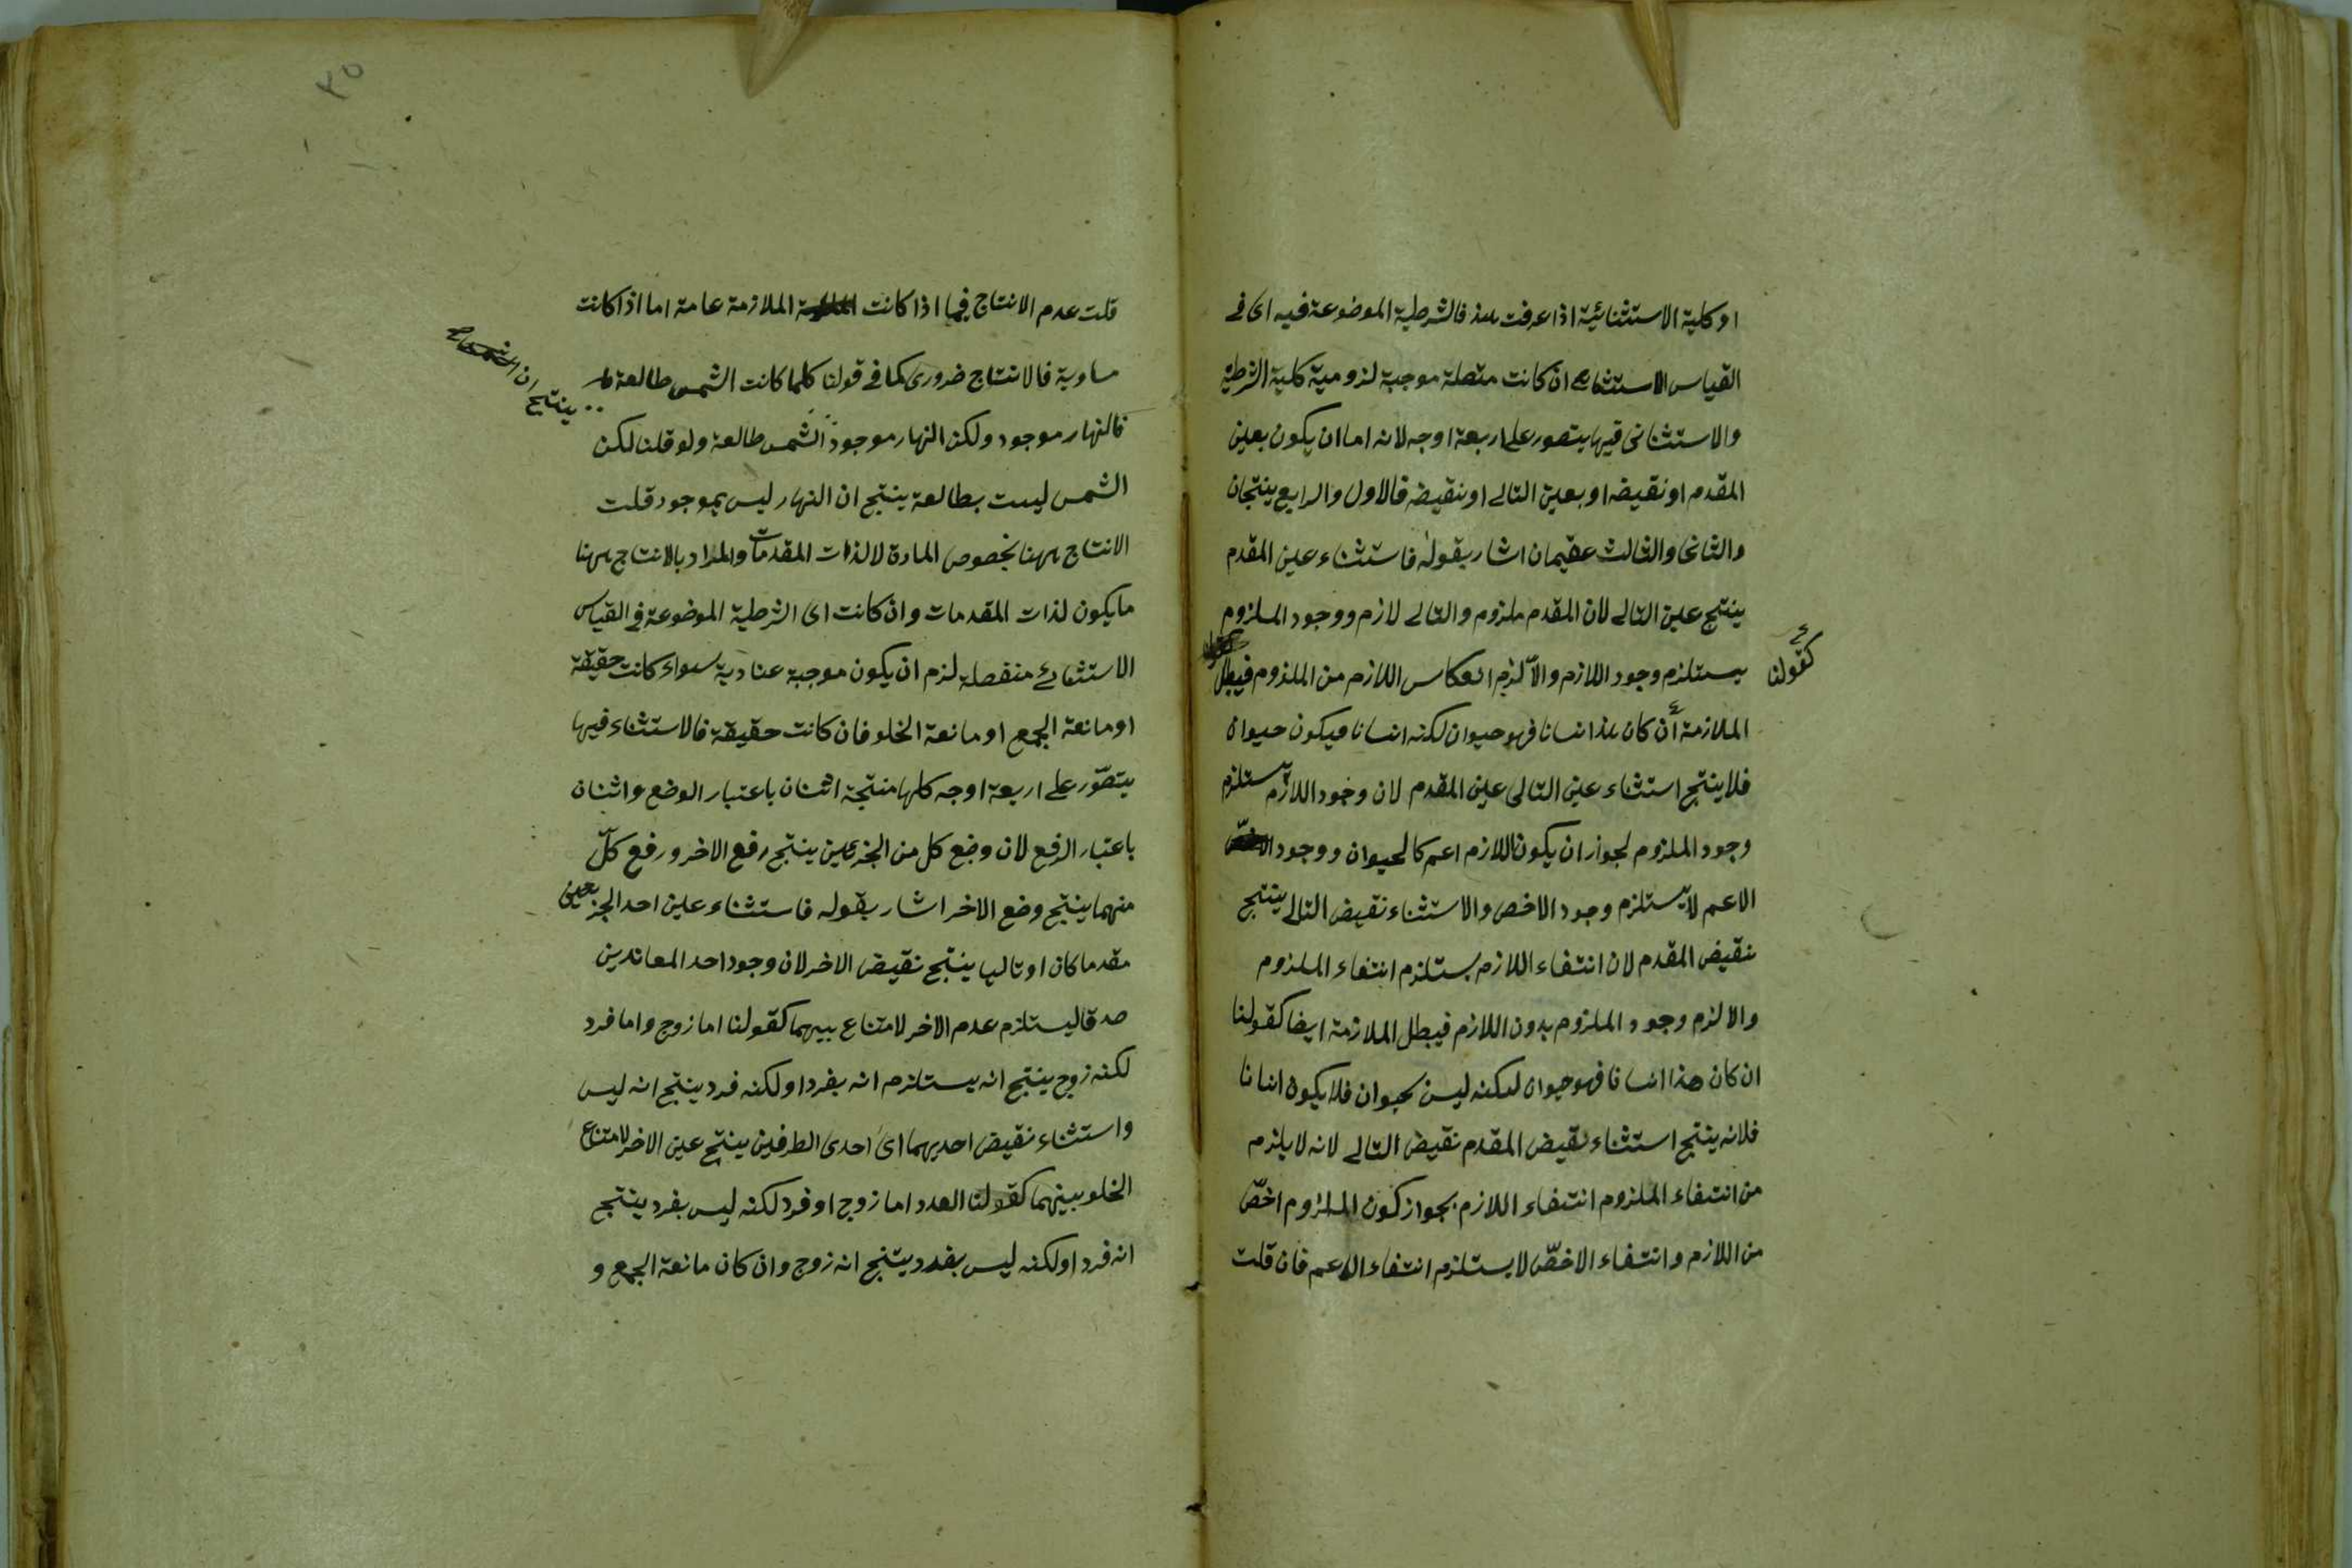 او كلية الاستثنائية اذا عرفت هذا فالشرطية الموضوعة فيه اى فى
القياس الاستثنائى ان كانت متصلة موجبة لزومية كلية الشرطية
والاستثنائى فيها يتصور على اربعة اوجه لانه اما ان يكون بعين
المقدم او نقيضه او بعين التالے او نقيضه فالاول والرابع ينتجان
والثانى والثالث عقيمان اشار بقوله فاستثناء عين المقدم
ينتج عين التالے لان المقدم ملزوم والتالے لازم ووجود الملزوم
يستلزم وجود اللازم والا لزم انعكاس اللازم من الملزوم فيبطل
كقولنا
الملازمة ان كان هذا انسانا فهو حيوان لكنه انسانا فيكون حيوان
فلا ينتج استثناء عين التالى عين المقدم لان وجود اللازم يستلزم
وجود الملزوم لجواز ان يكون اللازم اعم كالحيوان ووجود
الاعم لا يستلزم وجود الاخص والاستثناء نقيض التالے ينتج
نقيض المقدم لان انتفاء اللازم يستلزم انتفاء الملزوم
والا لزم وجود الملزوم بدون اللازم فيبطل الملازمة ايضا كقولنا
ان كان هذا انسانا فهو حيوان لكنه ليس بحيوان فلا يكون انسانا
فلانه ينتج استثناء نقيض المقدم نقيض التالے لانه لا يلزم
من انتفاء الملزوم انتفاء اللازم بجواز كون الملزوم اخصّ
من اللازم وانتفاء الاخصّ لا يستلزم انتفاء الاعم فان قلت
٣٥
قلت عدم الانتاج فيما اذا كانت الملازمة عامة اما اذا كانت
مساوية فالانتاج ضرورى كما فى قولنا كلما كانت الشمس طالعة
ينتج ان
فالنهار موجود ولكن النهار موجود الشمس طالعة ولو قلنا لكن
الشمس ليست بطالعة ينتج ان النهار ليس بموجود قلت
الانتاج ههنا بخصوص المادة لا لذات المقدمات والمراد بالانتاج ههنا
ما يكون لذات المقدمات وان كانت اى الشرطية الموضوعة فى القياس
الاستثنائے منفصلة لزم ان يكون موجبة عنادية سواء كانت حقيقة
او مانعة الجمع او مانعة الخلو فان كانت حقيقة فالاستثناء فيها
يتصوّر على اربعة اوجه كلها منتجة اثنان باعتبار الوضع واثنان
باعتبار الرفع لان وضع كل من الجزئين ينتج رفع الاخر ورفع كلّ
منهما ينتج وضع الاخر اشار بقوله فاستثناء عين احد الجزئين
مقدما كان او تاليا ينتج نقيض الاخر لان وجود احد المعاندين
صدقا يستلزم عدم الاخر لامتناع بينهما كقولنا اما زوج واما فرد
لكنه زوج ينتج انه يستلزم انه بفرد او لكنه فرد ينتج انه ليس
واستثناء نقيض احديهما اى احدى الطرفين ينتج عين الاخر لامتناع
الخلو بينهما كقولنا العدد اما زوج او فرد لكنه ليس بفرد ينتج
انه فرد او لكنه ليس بفرد ينتج انه زوج وان كان مانعة الجمع و